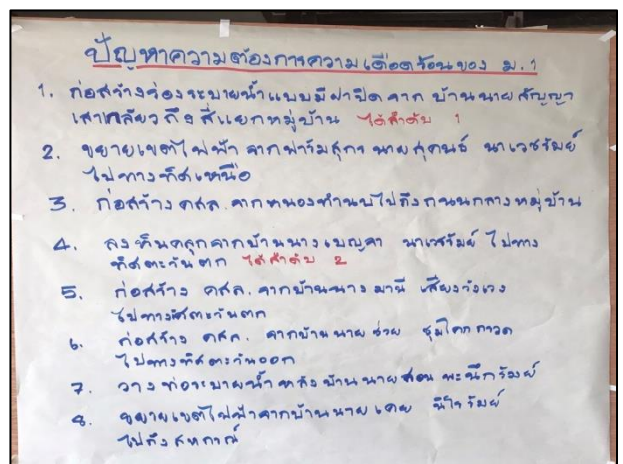 ปัญหาความต้องการความเดือดร้อนของ ม.1
1. ก่อสร้างร่องระบายน้ำแบบมีฝาปิดจาก บ้านนายสัญญา
เสาเกลียวถึงสี่แยกหมู่บ้าน ได้ลำดับ 1
2. ขยายเขตไฟฟ้า จากฟาร์มสุกร นายสุคนธ์ นาเวชรัมย์
ไปทางทิศเหนือ
3. ก่อสร้าง คสล. จากหนองทำนบไปถึงถนนกลางหมู่บ้าน
4. ลงหินคลุกจากบ้านนางเบญจา นาเวชรัมย์ ไปทาง
ทิศตะวันตก ได้ลำดับ 2
5. ก่อสร้าง คสล. จากบ้านนาง มานี เสียงวังเวง
ไปทางทิศตะวันตก
6. ก่อสร้าง คสล. จากบ้านนาย ช่วย
ไปทางทิศตะวันออก
7. วางท่อระบายน้ำ หลังบ้านนาย สอน พะนึกรัมย์
8. ขยายเขตไฟฟ้าจากบ้านนาย เคย
ไปถึงสหกรณ์